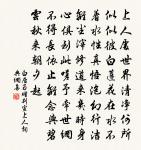 上人處世界清淨何所
似似彼白蓮花在水不
著水性真悟泡幻行潔
離塵滓修道來幾時身
心俱到此嗟予牽世網
不得長依止離念與碧
雲秋來朝夕起
白居易贈別宣上人